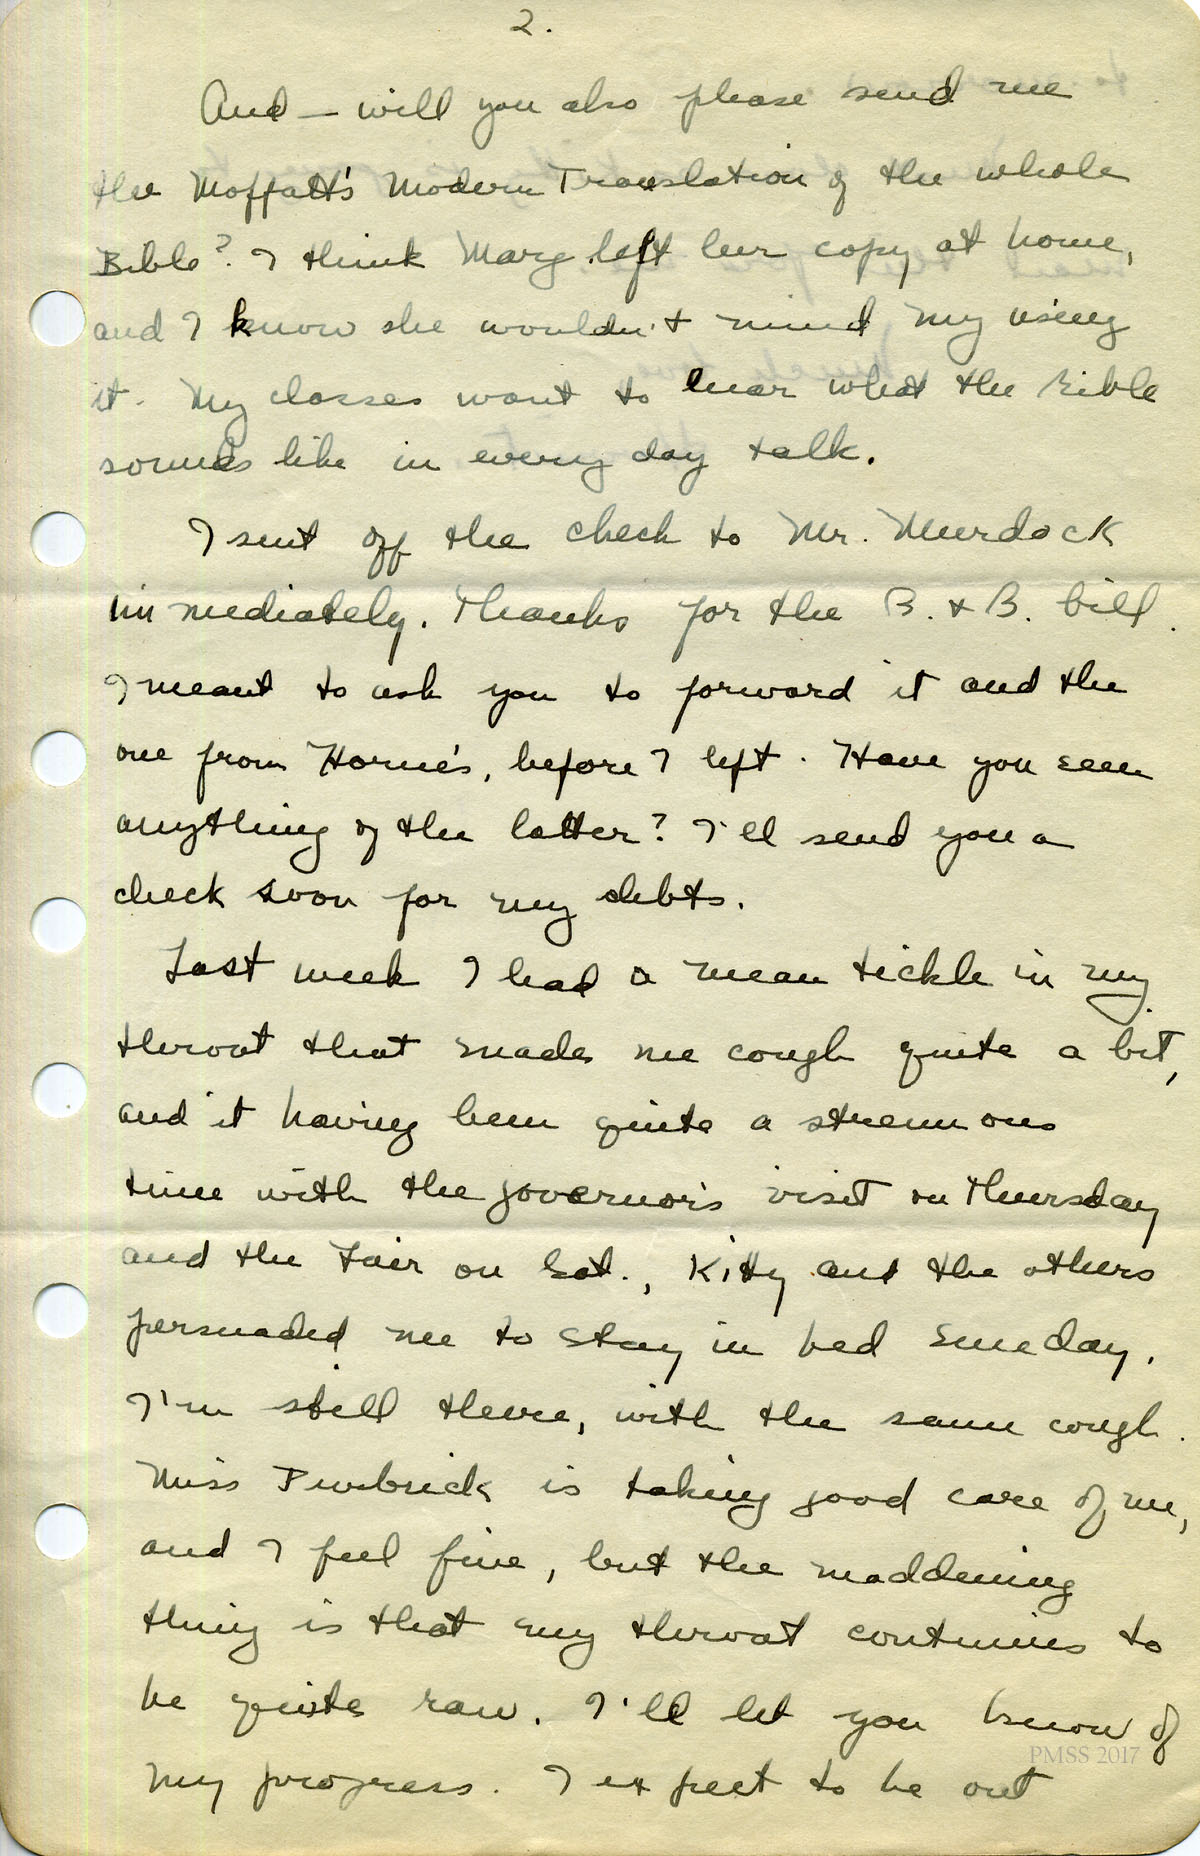 2.
And — will you also please send me
the Moffatt's Modern Translation of the whole
Bible? I think Mary left her copy at home,
and I know she wouldn't mind my using
it. My classes want to hear what the Bible
sounds like in every day talk.
I sent off the check to Mr. Murdock
immediately. Thanks for the B. & B. bill.
I meant to ask you to forward it and the
one from Horne's, before I left. Have you seen
anything of the latter? I'll send you a
check soon for my debts.
Last week I had a mean tickle in my
throat that made me cough quite a bit,
and it having been quite a strenuous
time with the governor's visit on Thursday
and the Fair on Sat., Kitty and the others
persuaded me to stay in bed Sunday.
I'm still there, with the same cough.
Miss is taking good care of me,
and I feel fine, but the maddening
thing is that my throat continues to
be quite raw. I'll let you know of
my progress. I expect to be out
PMSS 2017